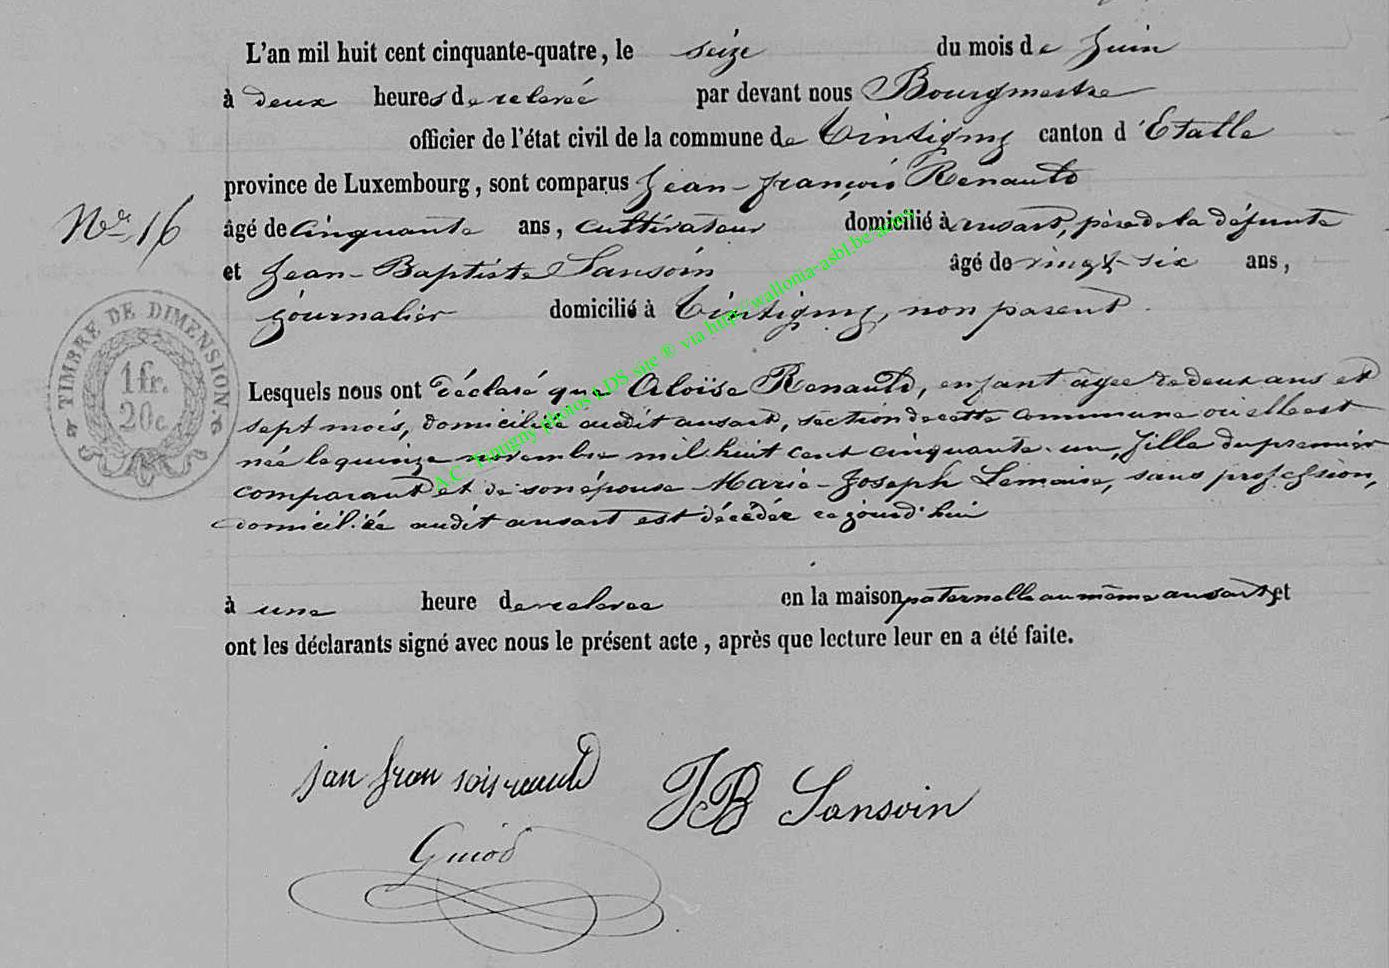 L'an mil huit cent cinquante-quatre, le seize du mois de Juin
à deux heures de relevée par devant nous Bourgmestre
officier de l'état civil de la commune de Tintigny canton d'Etalle
province de Luxembourg, sont comparus Jean-françois Renauld
N° 16
âgé de cinquante ans, cultivateur domicilié à ansart, père de la défunte
et Jean-Baptiste Sansoin âgé de vingt-six ans,
journalier domicilié à Tintigny, non parent.
TIMBRE DE DIMENSION.
1 fr.
20 c
Lesquels nous ont déclaré que Aloïse Renauld, enfant âgée de deux ans et
sept mois, domiciliée audit ansart, section de cette commune où elle est
née le quinze novembre mil huit cent cinquante-un, fille du premier
comparant et de son épouse Marie-Joseph Lemaire, sans profession,
domiciliée audit ansart est décédée ce jourd'hui
à une heure de relevée en la maison paternelle au même ansart, et
ont les déclarants signé avec nous le présent acte, après que lecture leur en a été faite.
A.C. Tintigny photos LDS site ® via http://wallonia-asbl.be/
jan fran sois
JB Sansoin